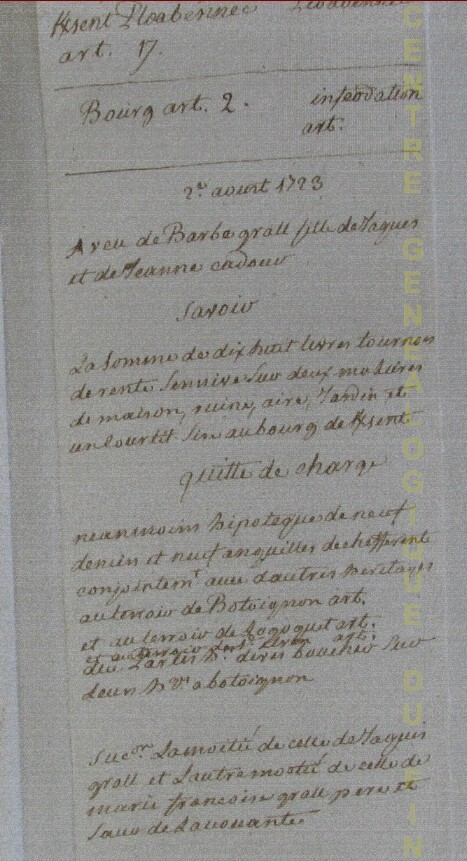 Ksent Ploabennec
art. 17.
Bourg art. 2. infeodation
art.
2e. aoust 1723
Aveu de Barbe grall fille de Jaques
et de Jeanne cadour
Savoir
La Somme de dix huit livres tournois
de rente Sur deux
de maison, ruine, aire, Jardin et
un Courtil Sis au bourg de Ksent
quitte de charge
neanmoins hipoteque de neuf
et neuf anguilles de chefferent
conjointemt avec dautres heritages
au terroir de Botoignon art.
et au terroir de art.
et au terroir art.
Sur
Leurs a botoignon
Sucon. La moitié de celle de Jaques
grall et Lautre moitié de celle de
marie francoise grall pere et
Sœur de Lavouante.
CENTRE GENEALOGIQUE DU FIN